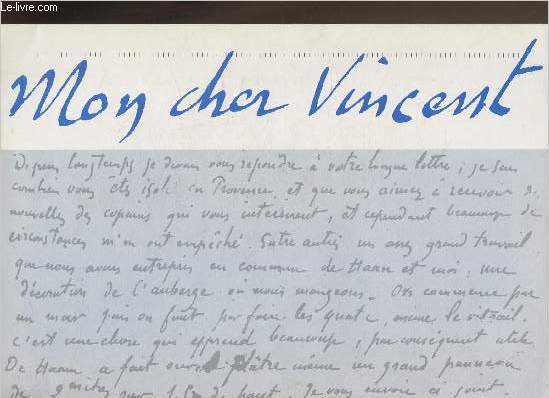 Le-livre.com
Mon cher Vincent
Depuis longtemps je devais vous répondre à votre longue lettre ; je sais
combien vous êtes isolé en Provence et que vous aimez à recevoir des
nouvelles des copains qui vous intéressent, et cependant beaucoup de
circonstances m'en ont empêché. Entre autres un assez grand travail
que nous avons entrepris en commun de Haan et moi : une
décoration de l'auberge où nous mangeons. On commence par
un mur puis on finit par faire les quatre, même le vitrail.
c'est une chose qui apprend beaucoup, par conséquent utile
De Haan a fait sur le plâtre même un grand panneau
de 2 mètres sur 1.50 de haut. Je vous envoie ci joint